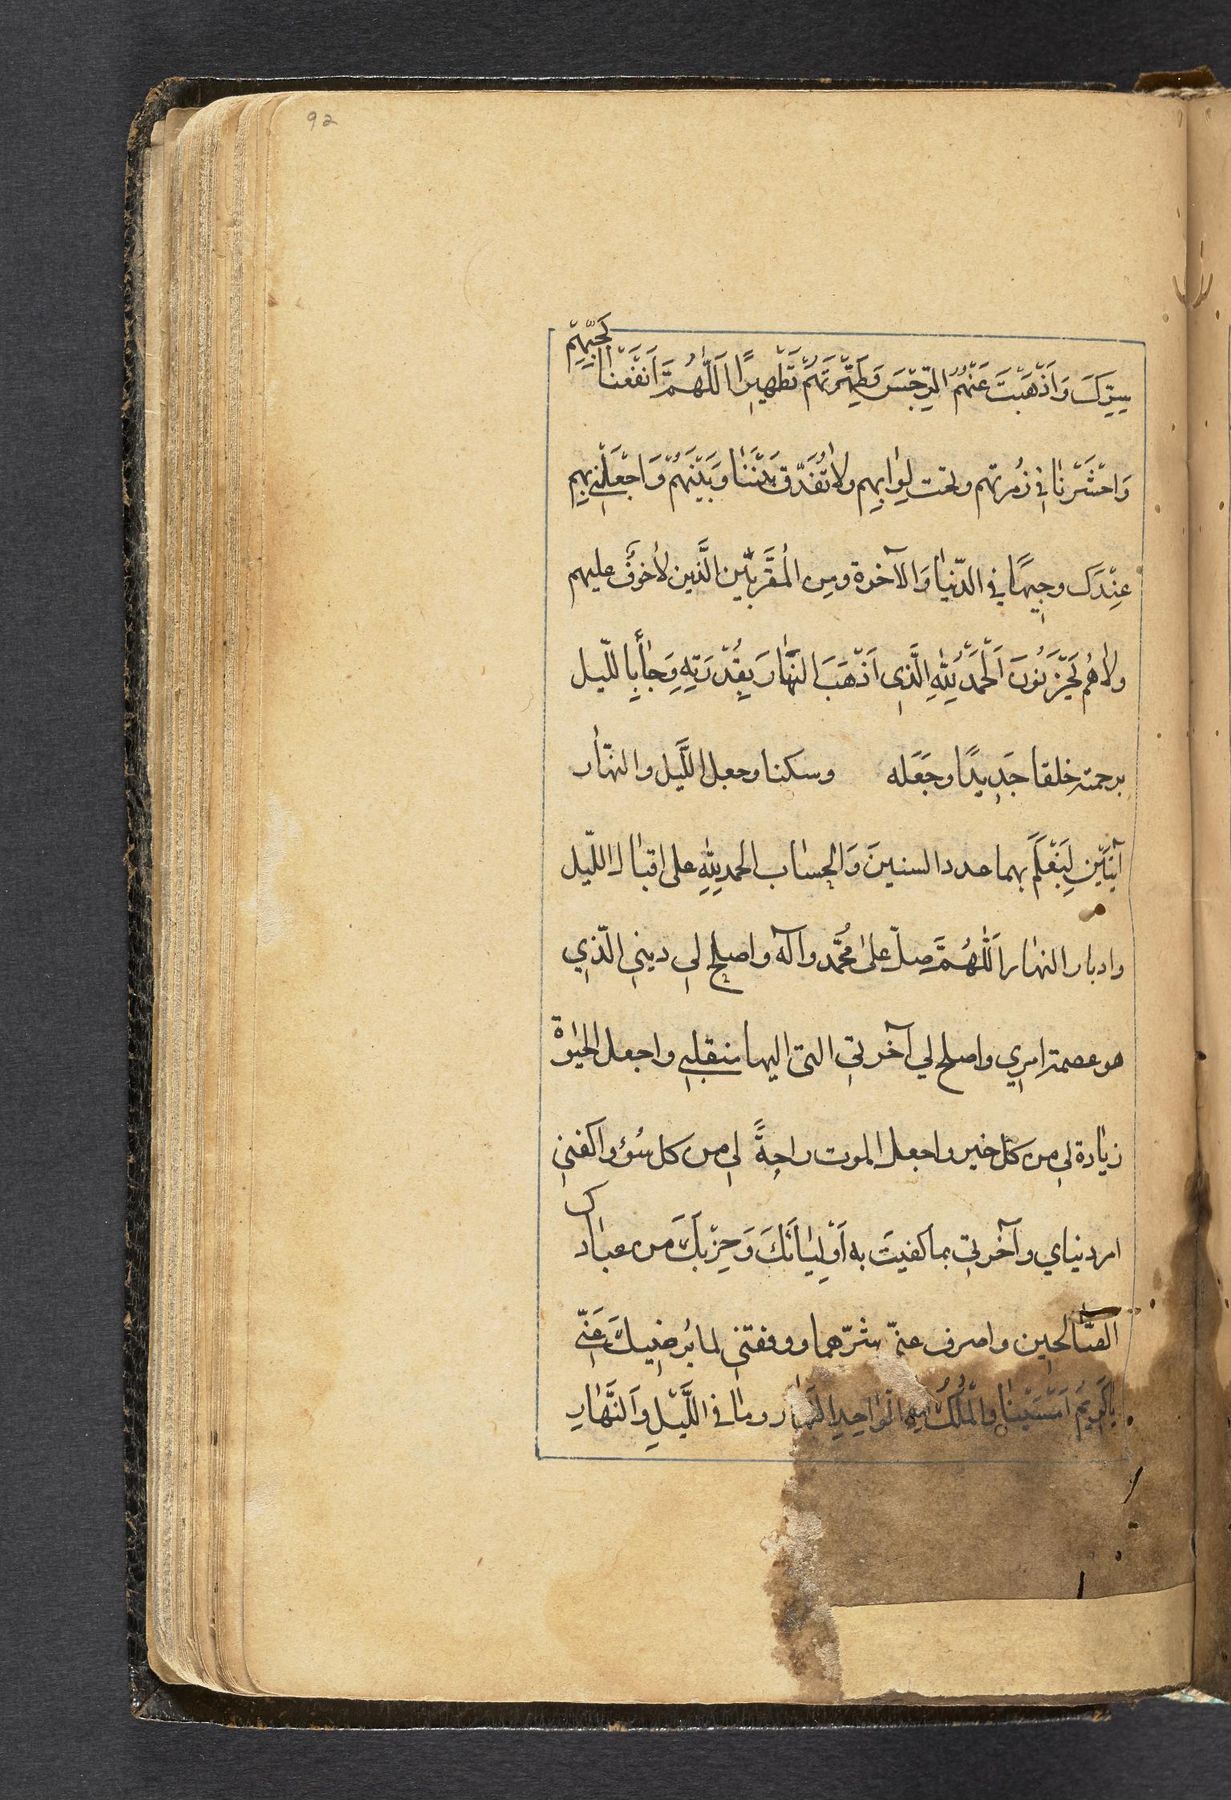 92
سِرِّكَ وَاَذْهَبْتَ عَنْهُمُ الرِّجْسَ وَطَهَّرْتَهُمْ تَطْهِيرًا اَللّٰهُمَّ اَنْفَعْنَا بِحُبِّهِمْ
وَاحْشَرْنَا فِي زُمرتهم وتحت لِوَايهِم ولَا تُفَرِّق بَيْنَنَا وَبَيْنَهُمْ وَاجْعَلْنِي بِهِم
عِنْدَكَ وجِيهًا فِي الدّنيَا وَالآخرة ومِن الْمُقَرَّبِيْن الَّذين لَاخوفٌ عليهم
ولَاهُم يَحْزَنُونَ اَلْحَمْدُ لِلّٰهِ الَّذِي اَذْهَبَ النَّهَارَ بِقُدْرَتِهِ وَجَاءَ بِاللّيل
برحمته خلقا جَدِيدًا وجَعَله وسكنا وجعل اللَّيل والنهَار
آيَتَيْنِ لِيَعْلَمَ بهما عدد السنينَ وَالحِسَاب الحمد لِلّٰهِ على اقبال اللّيل
وادبار النهَار اَللّٰهُمَّ صلّ عَلىٰ مُحَمَّد وآله واصلح لي ديني الّذي
هو عصمة امري واصلح لي آخرتي التي اليها منقلبي واجعل الحيٰوة
زيَادة لي من كلّ خير واجعل الموت راحةً لي من كل سُوْء واكفني
امر دنياي وآخرتي بما كفيتَ به اَوْلِيَائَكَ وَحِزْبَكَ من عبادك
الصَّالحين واصرف عنّي شرّهما ووفقني لما يُرضيكَ عَنّي
يَا كَرِيمُ اَمْسَيْنَا وَالْمُلْكُ لِلّٰهِ الْوَاحِدِ الْقَهَّار ومَا فِي اللَّيْلِ وَالنَّهَارِ